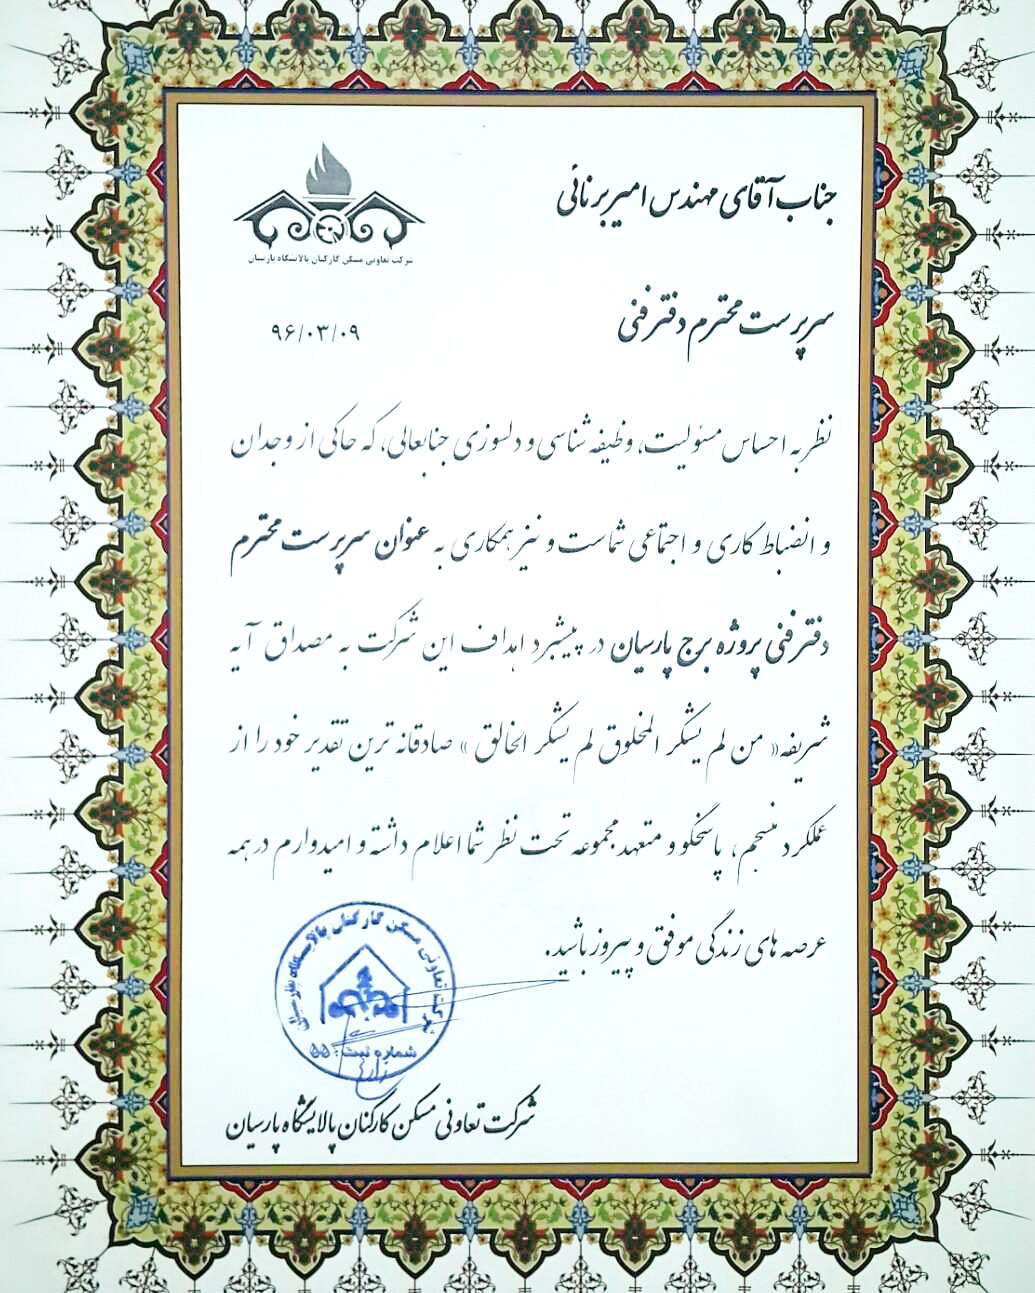 جناب آقای مهندس امیر برنائی
شرکت تعاونی مسکن کارکنان پالایشگاه پارسیان
سرپرست محترم دفتر فنی
۹۶/۰۳/۰۹
نظر به احساس مسؤلیت، وظیفه شناسی و دلسوزی جنابعالی، که حاکی از وجدان
و انضباط کاری و اجتماعی شماست و نیز همکاری به عنوان سرپرست محترم
دفتر فنی پروژه برج پارسیان در پیشبرد اهداف این شرکت به مصداق آیه
شریفه « من لم یشکر المخلوق لم یشکر الخالق » صادقانه ترین تقدیر خود را از
عملکرد منسجم، پاسخگو و متعهد مجموعه تحت نظر شما اعلام داشته و امیدوارم در همه
عرصه های زندگی موفق و پیروز باشید.
شرکت تعاونی مسکن کارکنان پالایشگاه پارسیان
شماره ثبت: ۵۵
شرکت تعاونی مسکن کارکنان پالایشگاه پارسیان